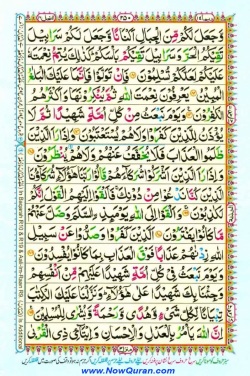 ٢٥٠
وَجَعَلَ لَكُمْ مِّنَ الْجِبَالِ اَكْنَانًا وَّجَعَلَ لَكُمْ سَرَابِيْلَ
تَقِيْكُمُ الْحَرَّ وَسَرَابِيْلَ تَقِيْكُمْ بَاْسَكُمْ كَذٰلِكَ يُتِمُّ نِعْمَتَهٗ
عَلَيْكُمْ لَعَلَّكُمْ تُسْلِمُوْنَ فَاِنْ تَوَلَّوْا فَاِنَّمَا عَلَيْكَ الْبَلٰغُ
الْمُبِيْنُ يَعْرِفُوْنَ نِعْمَتَ اللّٰهِ ثُمَّ يُنْكِرُوْنَهَا وَاَكْثَرُهُمُ
الْكٰفِرُوْنَ وَيَوْمَ نَبْعَثُ مِنْ كُلِّ اُمَّةٍ شَهِيْدًا ثُمَّ لَا
يُؤْذَنُ لِلَّذِيْنَ كَفَرُوْا وَلَا هُمْ يُسْتَعْتَبُوْنَ وَاِذَا رَاَ الَّذِيْنَ
ظَلَمُوا الْعَذَابَ فَلَا يُخَفَّفُ عَنْهُمْ وَلَا هُمْ يُنْظَرُوْنَ
وَاِذَا رَاَ الَّذِيْنَ اَشْرَكُوْا شُرَكَآءَهُمْ قَالُوْا رَبَّنَا هٰٓؤُلَآءِ شُرَكَآؤُنَا
الَّذِيْنَ كُنَّا نَدْعُوْا مِنْ دُوْنِكَ فَاَلْقَوْا اِلَيْهِمُ الْقَوْلَ اِنَّكُمْ
لَكٰذِبُوْنَ وَاَلْقَوْا اِلَى اللّٰهِ يَوْمَئِذِ اِۨلسَّلَمَ وَضَلَّ عَنْهُمْ
مَّا كَانُوْا يَفْتَرُوْنَ اَلَّذِيْنَ كَفَرُوْا وَصَدُّوْا عَنْ سَبِيْلِ
اللّٰهِ زِدْنٰهُمْ عَذَابًا فَوْقَ الْعَذَابِ بِمَا كَانُوْا يُفْسِدُوْنَ
وَيَوْمَ نَبْعَثُ فِيْ كُلِّ اُمَّةٍ شَهِيْدًا عَلَيْهِمْ مِّنْ اَنْفُسِهِمْ
وَجِئْنَا بِكَ شَهِيْدًا عَلٰى هٰٓؤُلَآءِ وَنَزَّلْنَا عَلَيْكَ الْكِتٰبَ
تِبْيَانًا لِّكُلِّ شَيْءٍ وَّهُدًى وَّرَحْمَةً وَّبُشْرٰى لِلْمُسْلِمِيْنَ
اِنَّ اللّٰهَ يَاْمُرُ بِالْعَدْلِ وَالْاِحْسَانِ وَاِيْتَآئِ ذِي الْقُرْبٰى
www.NowQuran.com